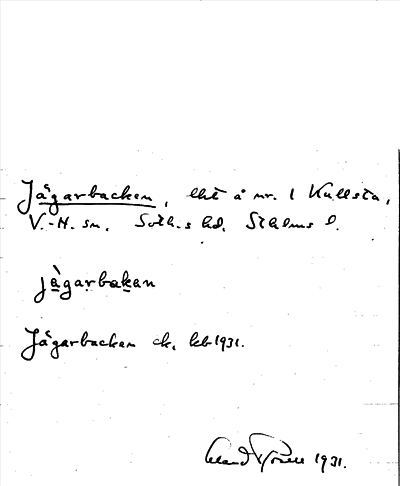 Jägarbacken, lht å nr. 1 Kullsta,
V.-H. sn. Soth.s hd. Sthlms l.
jàgarbakan
Jägarbacken ek. kb 1931.
1931.